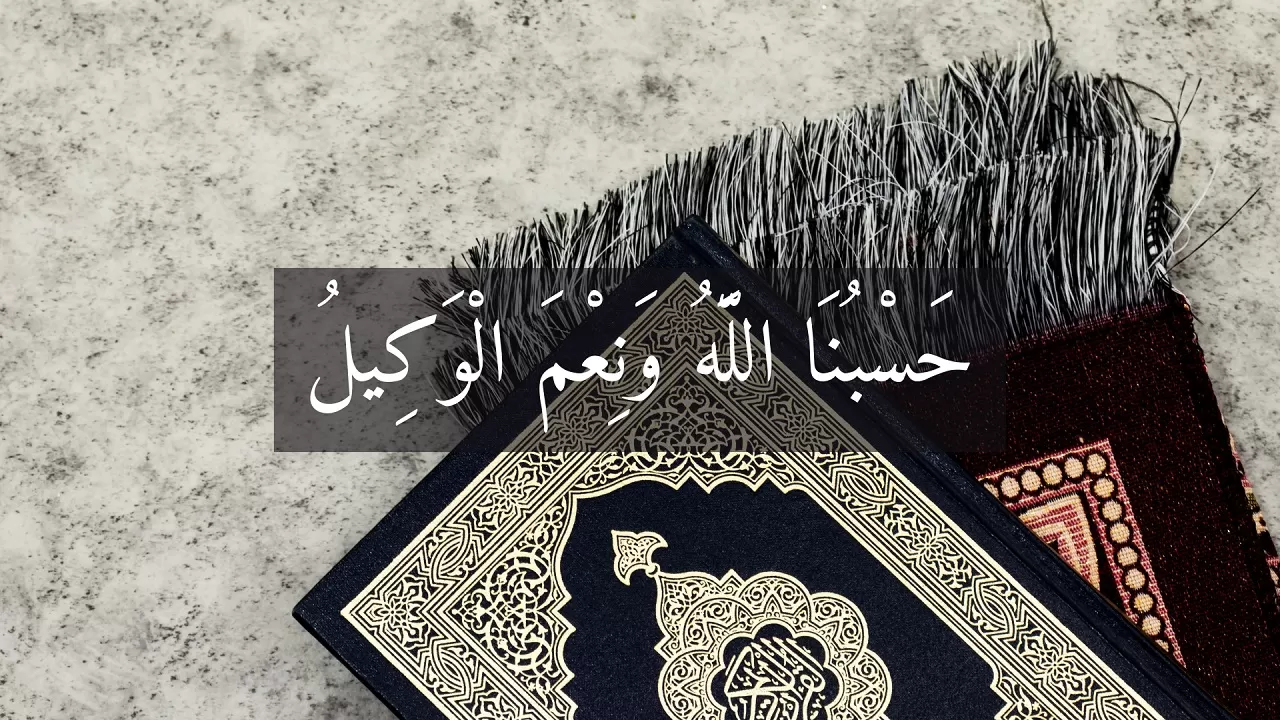 حَسْبُنَا اللّهُ وَنِعْمَ الْوَكِيلُ